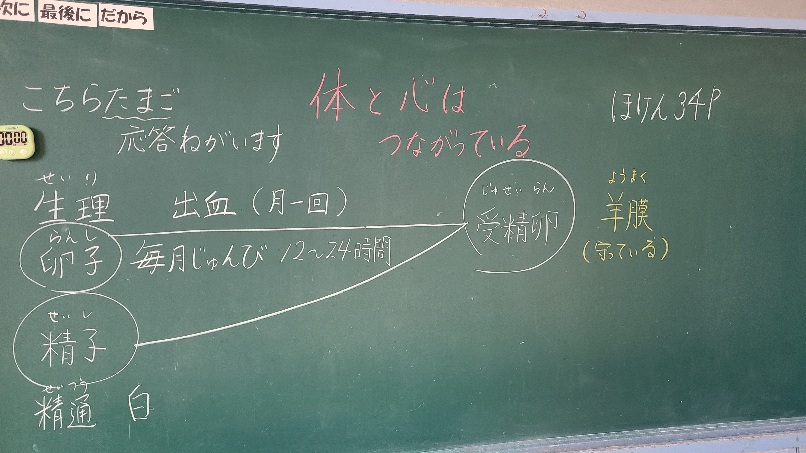 次に 最後に だから
こちらたまご
応答ねがいます
体と心は
つながっている
ほけん34P
せいり
生理 出血(月一回)
らんし
卵子 毎月じゅんび 12~24時間
せいし
精子
せいつう
精通 白
じゅせいらん
受精卵
ようまく
羊膜
(守っている)